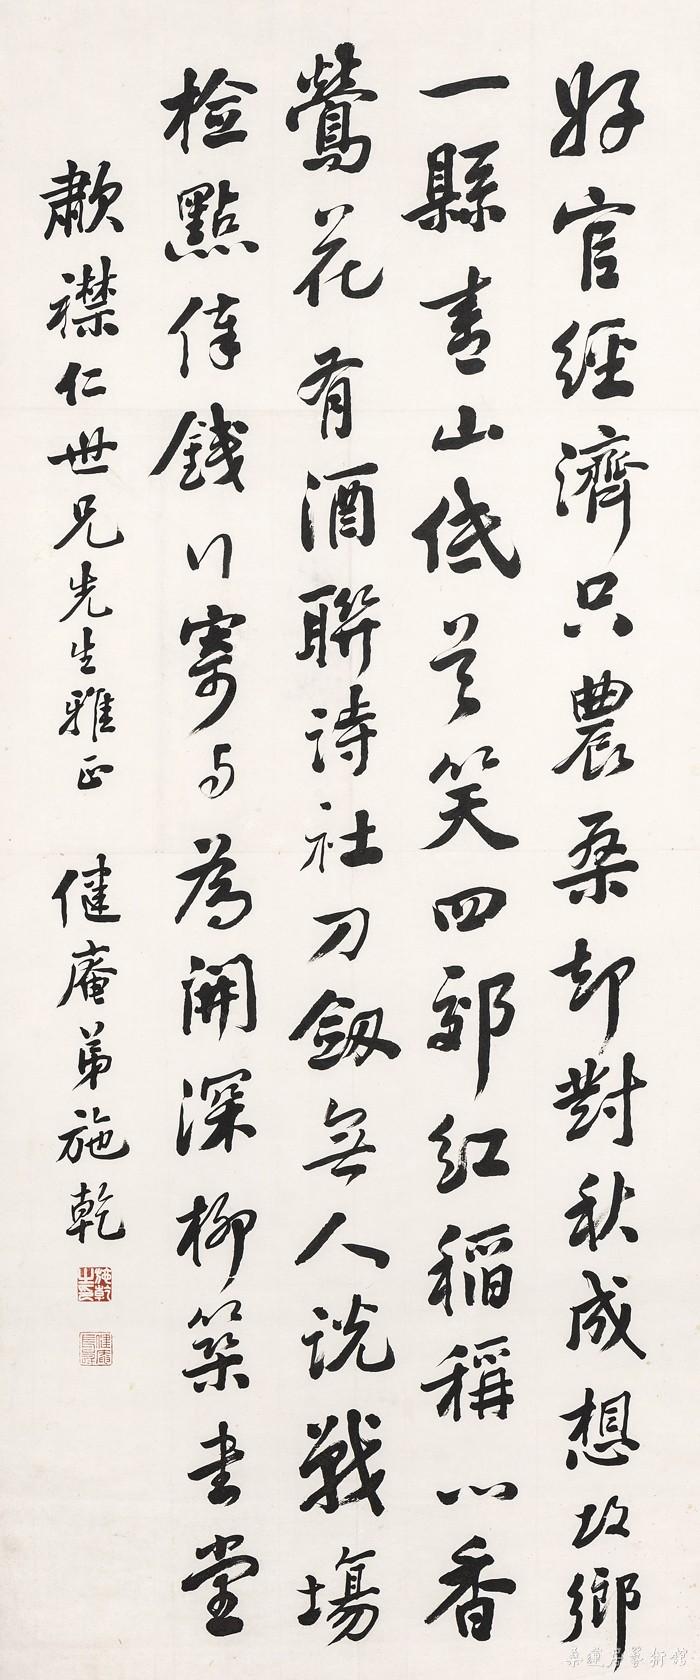 好官經濟只農桑却對秋成想故鄉
一縣青山低首笑四郊紅稲稱心香
鶯花有酒聯詩社刀劒無人說戰場
檢點俸錢行寄與為開深柳築書堂
歗襟仁世兄先生雅正 健庵弟施乾
施乾之印
桑蓮居藝術館